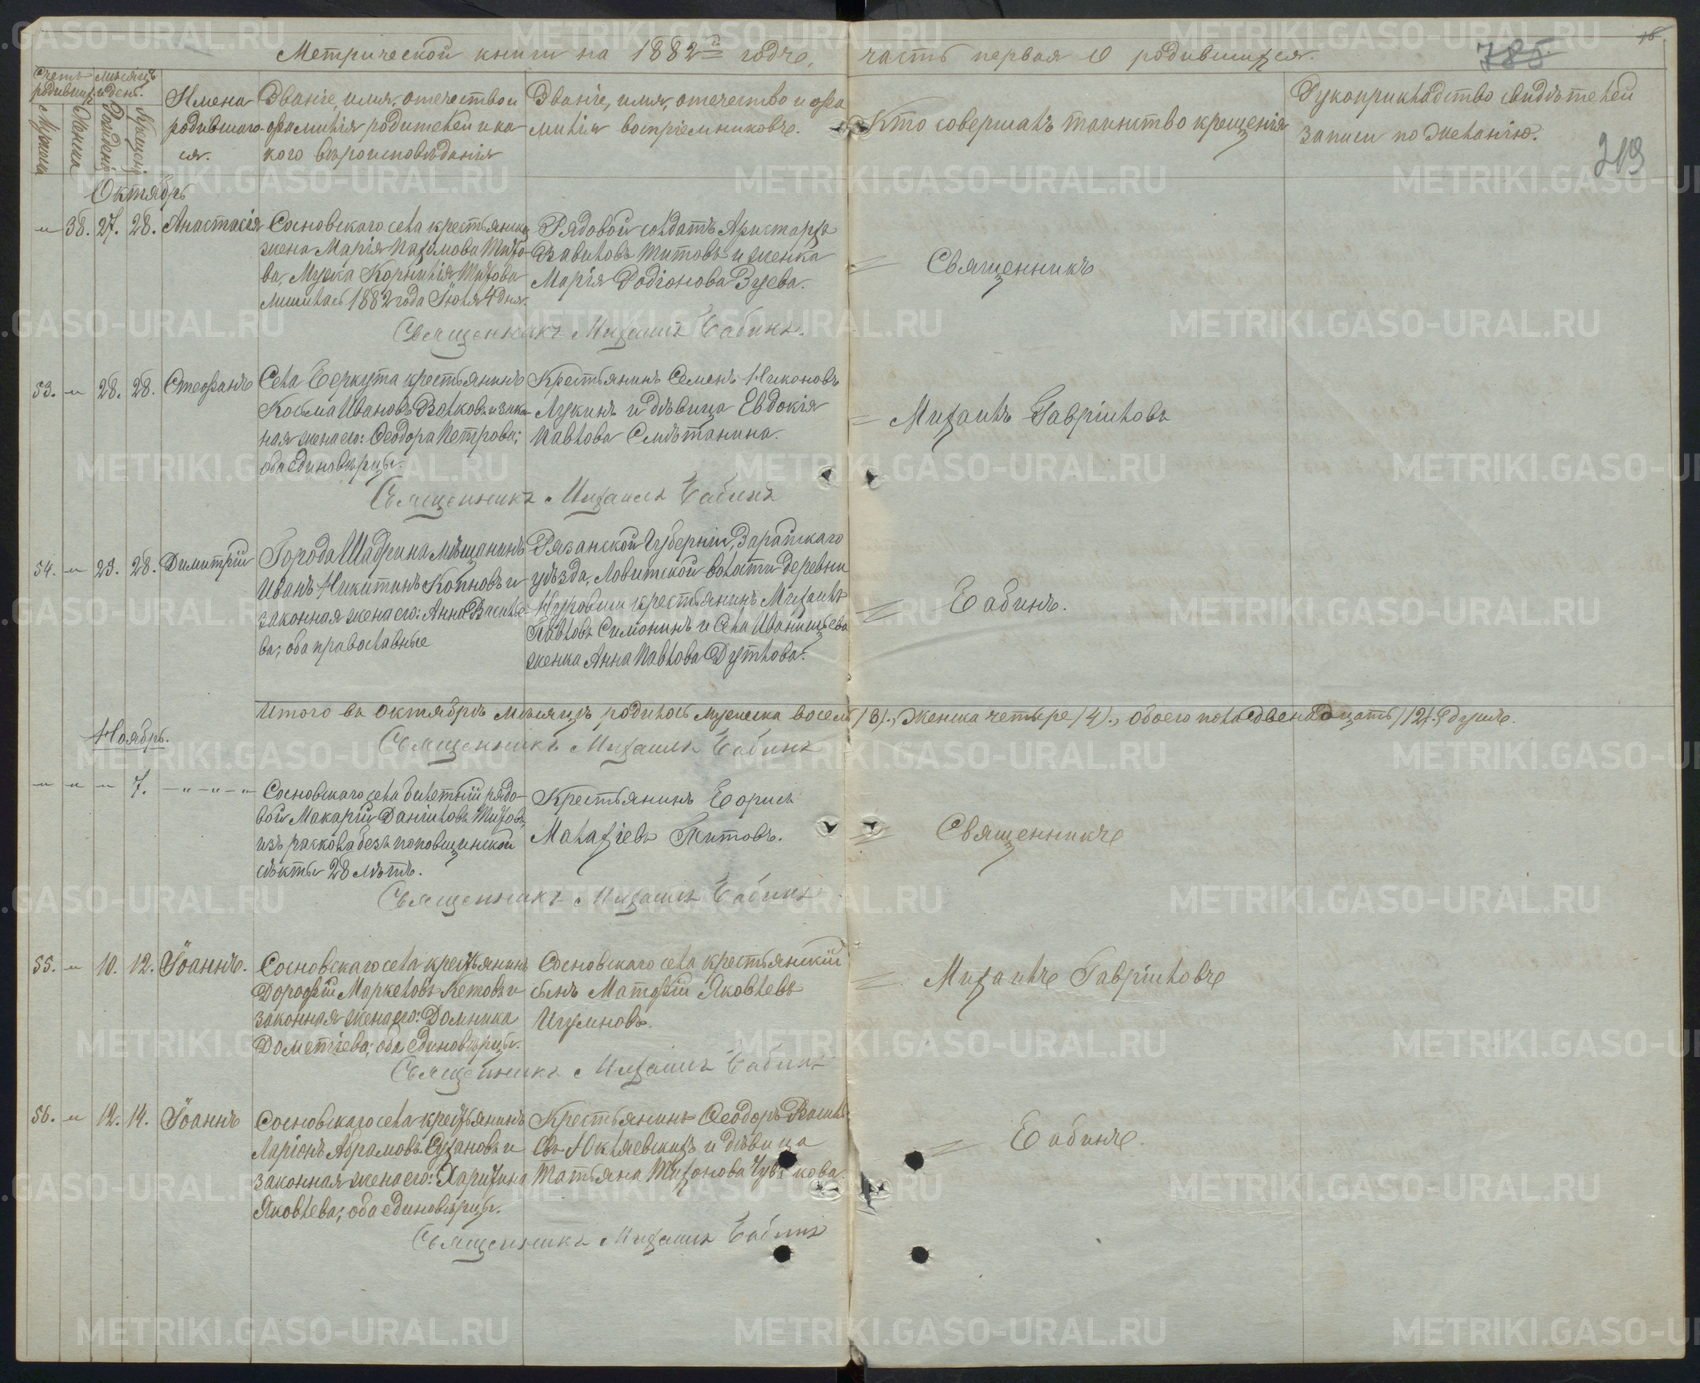 Метрической книги на 1882й годъ, часть первая О родившихся.
785
213
Счетъ родившихся
Мѣсяцъ и день.
Мужска
Женска
Рожденія
Крещенія
Имена
родившихся.
Званіе, имя, отечество и
фамилія родителей и ка-
кого вѣроисповѣданія
Званіе, имя, отечество и фа
милія воспріемниковъ.
Кто совершалъ таинство крещенія
Рукоприкладство свидѣтелей
записи по желанію.
Октябрь
" 38. 27. 28. Анастасія
Сосновскаго села крестьянина
жена Марія
Мужа Корнилія
лишилась 1882 года Іюля 4 дня.
Рядовой солдатъ Аристархъ
Титовъ и женка
Марія Родіонова Зуева.
Священникъ
Священникъ Михаилъ Бабинъ.
53. " 28. 28. Стефанъ
Села Беркута крестьянинъ
Косма Ивановъ Волковъ и закон
ная жена его: Ѳеодора Петрова;
оба единовѣрцы.
Крестьянинъ Семенъ Никоновъ
Лукинъ и дѣвица Евдокія
Павлова Смѣтанина.
Михаилъ Гавріиловъ
Священникъ Михаилъ Бабинъ
54. " 23. 28. Димитрій
Города Шадрина мѣщанинъ
Иванъ Никитинъ Копновъ и
законная жена его: Анна Василье
ва; оба православные
Рязанской Губерніи, Зарайскаго
уѣзда, Ловитской волости деревни
крестьянинъ Михаилъ
Павловъ Симонинъ и села Иванищева
женка Анна Павлова Дутлова.
Бабинъ.
Итого въ октябрѣ мѣсяцѣ родилось мужеска восемь /8/., женска четыре /4/., обоего пола двенадцать /12/ душъ.
Священникъ Михаилъ Бабинъ
Ноябрь.
" " " 7. " " "
Сосновскаго села билетный рядо-
вой Макарій Даніиловъ Титовъ,
изъ раскола безпоповщинской
секты 28 лѣтъ.
Крестьянинъ Борисъ
Малахіевъ Титовъ.
Священникъ
Священникъ Михаилъ Бабинъ
55. " 10. 12. Іоаннъ.
Сосновскаго села крестьянинъ
Дорофій Маркеловъ Кетовъ и
законная жена его: Домника
Дометіева; оба единовѣрцы.
Сосновскаго села крестьянскій
сынъ Матфій Яковлевъ
Игумновъ.
Михаилъ Гавріиловъ
Священникъ Михаилъ Бабинъ
56. " 12. 14. Іоаннъ
Сосновскаго села крестьянинъ
Ларіонъ Абрамовъ Сухановъ и
законная жена его: Харитина
Яковлева; оба единовѣрцы.
Крестьянинъ Ѳеодоръ Василь
евъ Юкляевскихъ и дѣвица
Татьяна Тихонова Чувакова.
Бабинъ.
Священникъ Михаилъ Бабинъ
METRIKI.GASO-URAL.RU